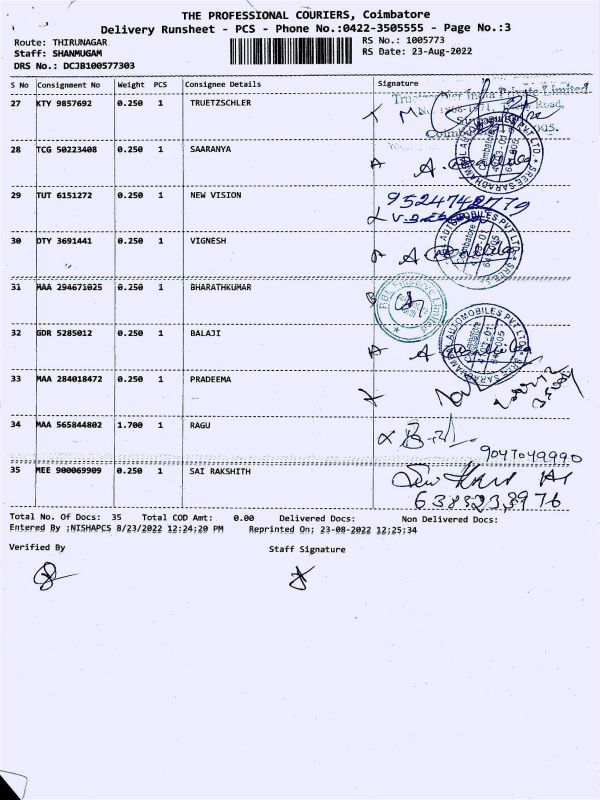 THE PROFESSIONAL COURIERS, Coimbatore
Delivery Runsheet - PCS - Phone No.:0422-3505555 - Page No.:3
Route: THIRUNAGAR
Staff: SHANMUGAM
DRS No.: DCJB100577303
RS No.: 1005773
RS Date: 23-Aug-2022
S No Consignment No Weight PCS Consignee Details Signature
27 KTY 9857692 0.250 1 TRUETZSCHLER
28 TCG 50223408 0.250 1 SAARANYA
29 TUT 6151272 0.250 1 NEW VISION
9524742779
30 DTY 3691441 0.250 1 VIGNESH
31 MAA 294671025 0.250 1 BHARATHKUMAR
32 GDR 5285012 0.250 1 BALAJI
33 MAA 284018472 0.250 1 PRADEEMA
34 MAA 565844802 1.700 1 RAGU
9047049990
35 MEE 900069909 0.250 1 SAI RAKSHITH
Total No. Of Docs: 35 Total COD Amt: 0.00 Delivered Docs: Non Delivered Docs:
Entered By :NISHAPCS 8/23/2022 12:24:29 PM Reprinted On: 23-08-2022 12:25:34
Verified By Staff Signature